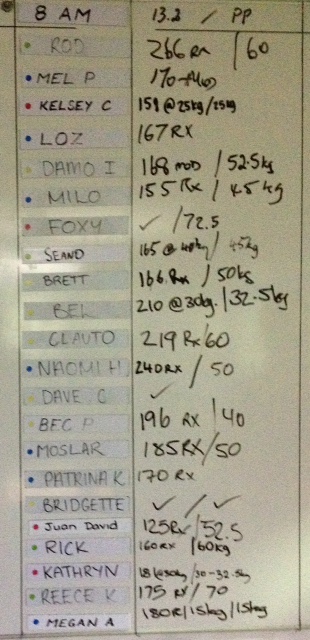 8 AM 13.2 / PP
ROD 266 RX / 60
MEL P 170-Mod
KELSEY C 151 @ 25kg/25kg
LOZ 167 RX
DAMO I 168 MOD / 52.5kg
MILO 155 Rx / 45kg
FOXY ✓ / 72.5
SEANO 165 @ 40kg / 45kg
BRETT 166 Rx / 50kg
BEL 210 @ 30kg. / 32.5kg
CLAUTO 219 Rx/60
NAOMI H 240 RX / 50
DAVE C ✓
BEC P 196 RX / 40
MOSLAR 185RX/50
PATRINA K 170 RX
BRIDGETTE ✓ / ✓
Juan David 125Rx/52.5
RICK 160RX /60kg
KATHRYN /30-32.5kg
REECE K 175 RX/ 70
MEGAN A 180R/15kg/15kg